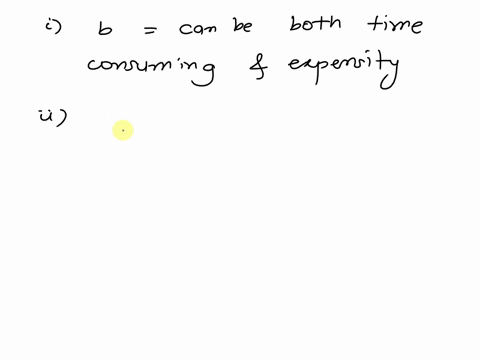 i) b = can be both time
consuming & expensity
ii)